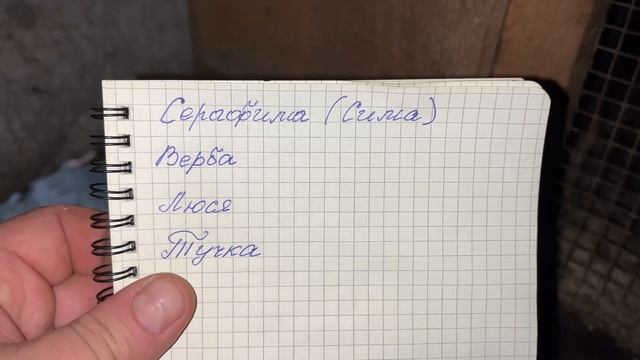 Серафима (Сима)
Верба
Люся
Тучка